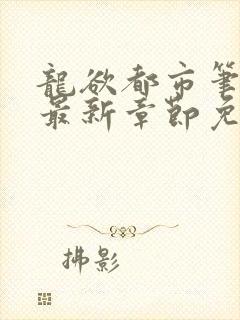 龍欲都市筆
最新章節免
拂影